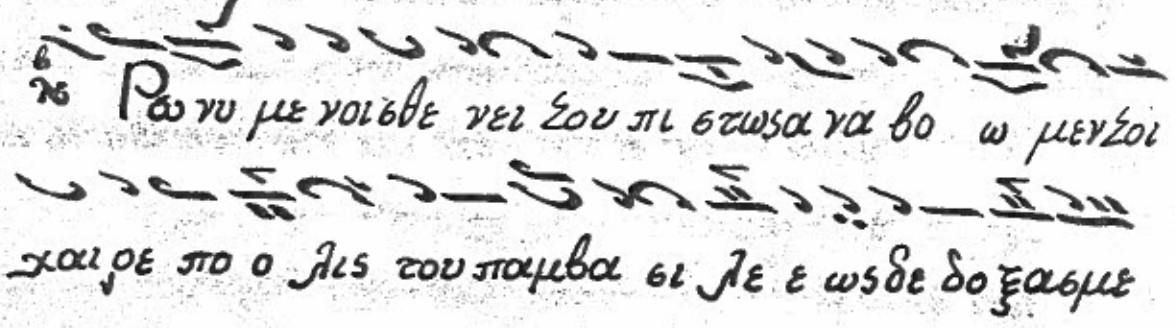 Ρω νυ με νοισθε νει σου πι στωςα να βο ω μενσοι
χαι ρε πο ο λις του παμβα σι λε ε ωςδε δο ξασμε